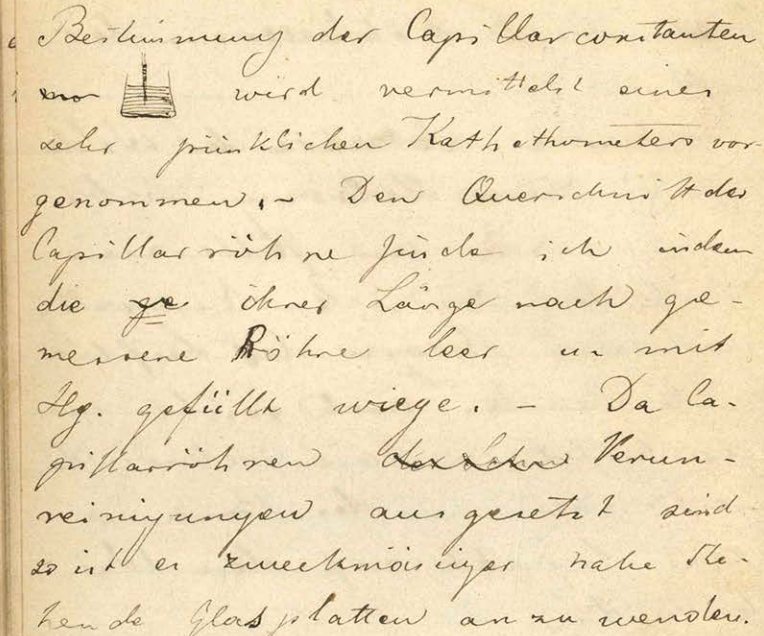 Bestimmung der Capillarconstanten
wird vermittelst eines
sehr pünklichen Kathethometers vor-
genommen. – Den Querschnitt der
Capillarröhre finde ich indem
die ihrer Länge nach ge-
messene Röhre leer u. mit
Hg. gefüllt wiege. – Da Ca-
pillarröhren Verun-
reinigungen ausgesetzt sind
so ist es zweckmäsiger nahe ste-
hende Glasplatten anzuwenden.